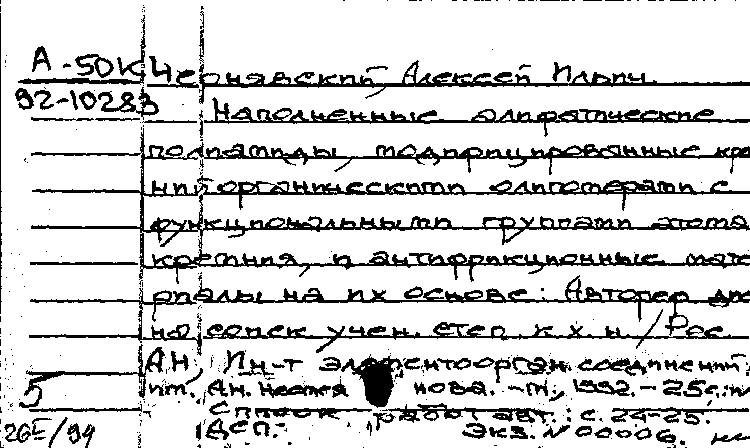 А-50К Чернявский, Алексей Ильич.
92-10283
Наполненные алифатические
полиамиды, модифицированные кре
нийорганическими олигомерами с
функциональными группами атома
кремния, и антифрикционные мате
риалы на их основе: Автореф дис
на соиск учен. степ. к. х. н / Рос.
АН, Ин-т элементоорган. соединений,
им. А.Н. Несмея нова. - М., 1992. - 25с.: ил
5
Список работ авт.: с. 24-25.
26Е/94
ДСП. Экз. N 00006.